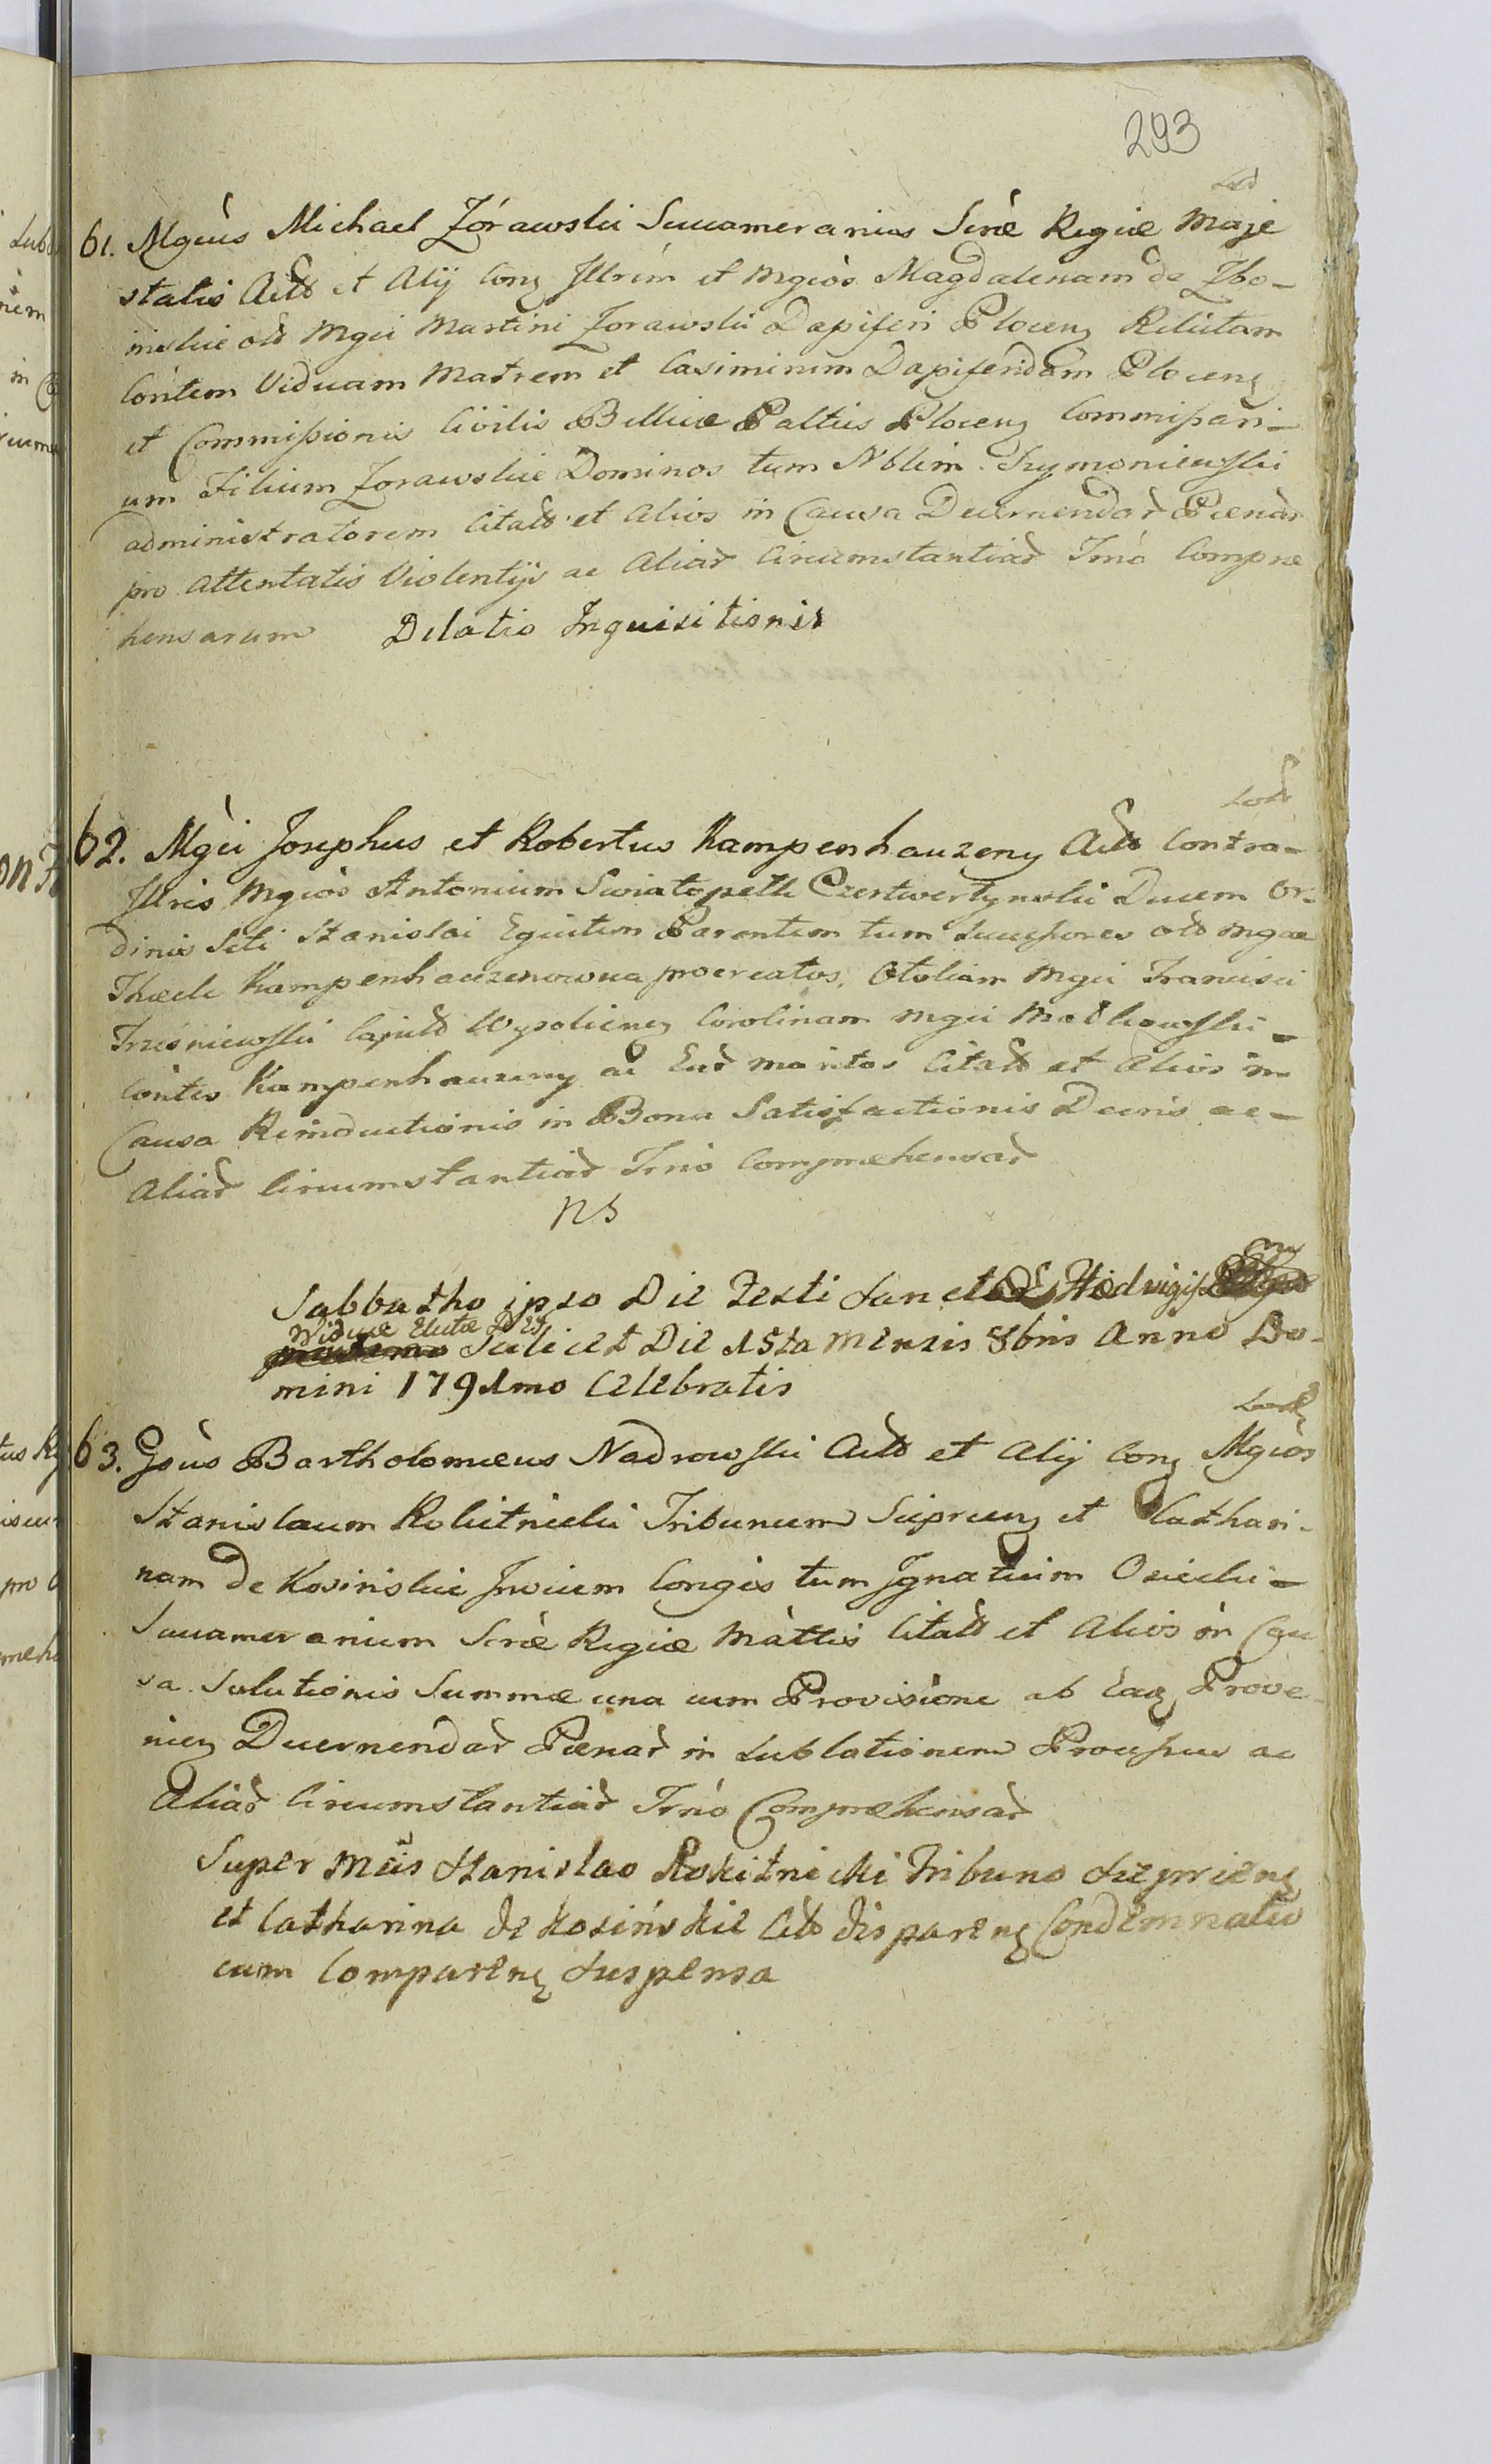 293
61. Mgcùs Michael Zórawski Succamerarius Sernæ Regiæ Maje
statis Actor et Alij Conq Jllrém et Mgcòs Magdalenam de Zbo-
inskie old Mgci Martini Zorawski Dapiferi Plocenq Relictam
Còntem Viduam Matrem et Casimirum Dapiferidam Plocenq
et Commissionis Civilis Bellicæ Paltùs Plocenq Commissari-
um Filium Zorawskie Dominos tum Nblem. Szymoniewski
administratorem Citatt et Alios in Causa Decernendar Pænar
pro Attentatis Violentijs ac Aliar Circumstantiar Trnò Compræ
hensarum Dilatio Inquisitionis
62. Mgci Josephus et Robertus Kampenhauzeny Actt Contra-
Jllris Mgcòs Antonium Swiatopelk Czertwertynski Ducem Or-
dinis Scti Stanislai Equitem Parentem tum Successores old Mgae
Theclæ Kampenhauzenowna procreatos, Otoliam Mgci Francisci
Trzesniewski Carolinam Mgci
Còntes Kampenhauzeny ac Ear maritos Citatt et Alios in
Causa Reinductionis in Bona Satisfactionis Decris ac-
Aliar Circumstantiar Trnò Compræhensar
NS
Sabbatho ipso Die Festi Sanctæ Hedvigis
Viduæ Electæ Scilicet Die 15ta Mensis 8bris Anno Do-
mini 1791mo Celebratis
63. Gsùs Bartholomeus Nadrowski Actt et Alij Conq Mgcòs
Stanislaum Rokitnicki Tribunum Sieprcenq et Cathari-
nam de Kosinskie Invicem Conges tum Ignatium Osiecki-
Succamerarium Sernæ Regiæ Mattis Citatt et Alios in Cau
sa Solutionis Summæ una cum Provisione ab Eaq Prove-
nienq Decernendar Pænar in Sublationem Processus ac
Aliar Circumstantiar Trnò Compræhensar
Super Mcis Stanislao Rokitnicki Tribuno Sieprcenq
et Catharina de Kosińskie Citt disparenq Condemnatio
cum Comparenq Suspensa